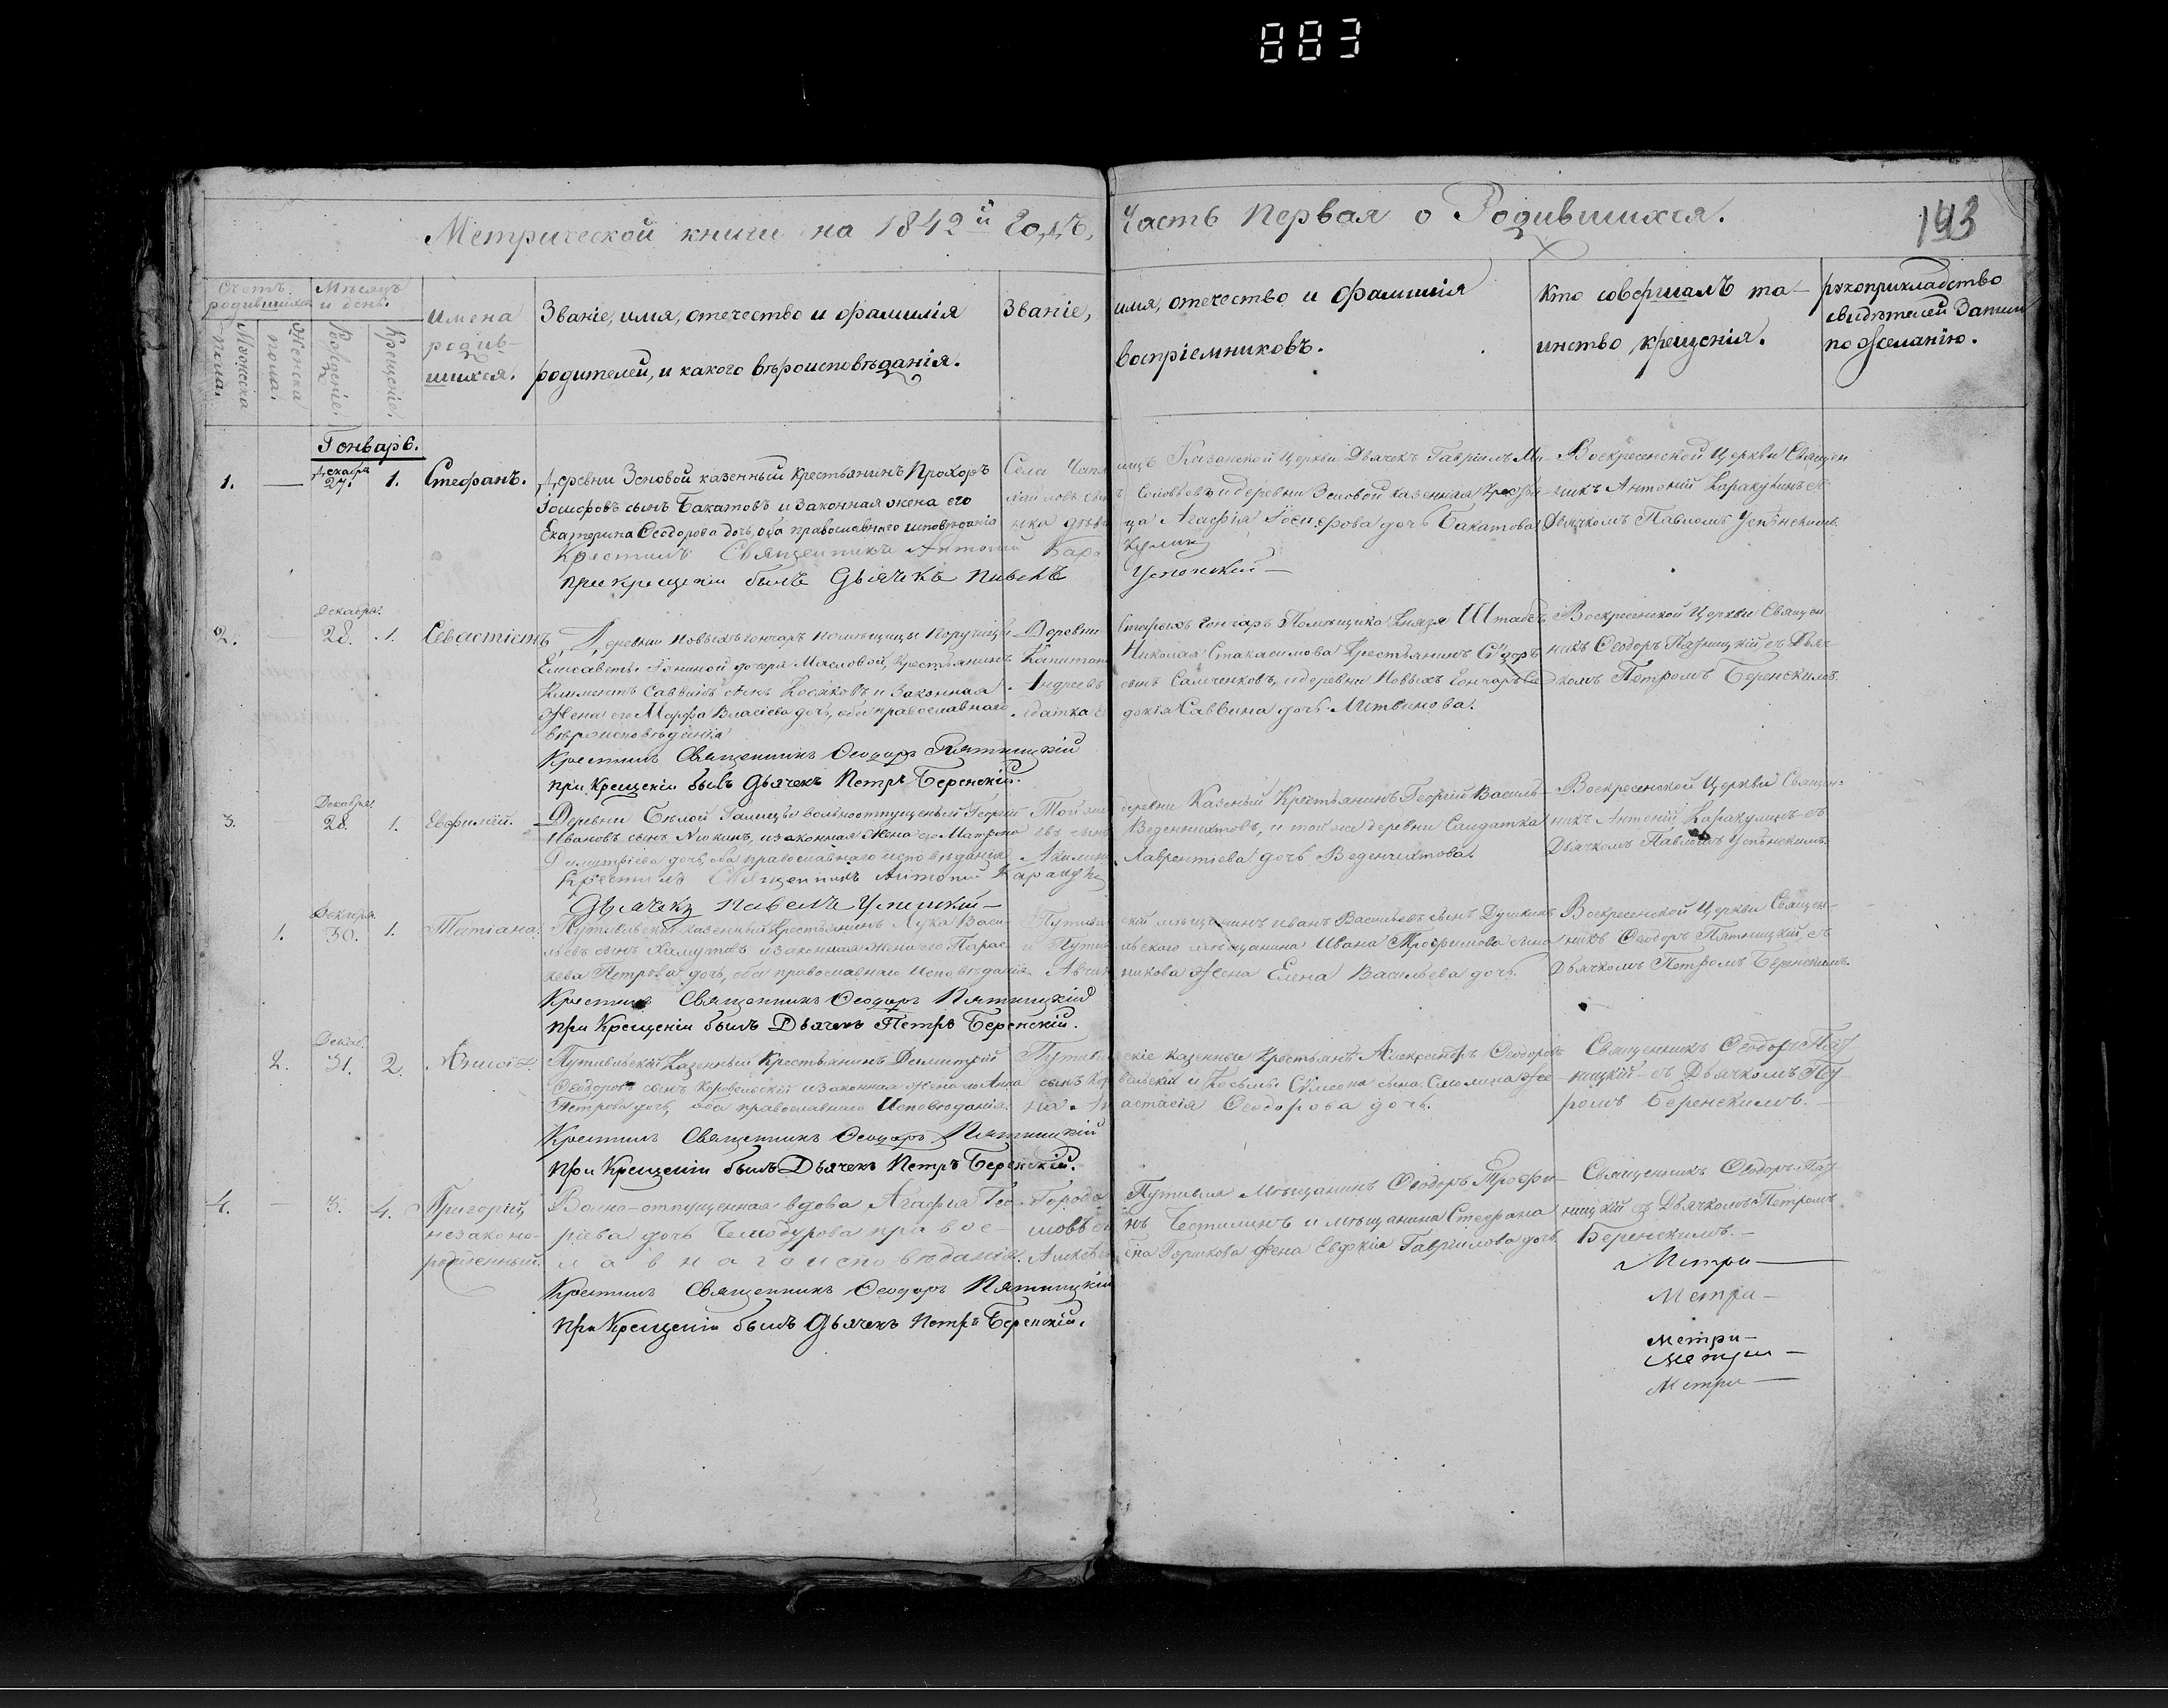 883
Метрической книги на 1842й Годъ, Часть Первая о Родившихся.
193
Счетъ родившихся
Мѣсяцъ и день.
Мужеска пола.
Женска пола.
Рожденіе.
Крещеніе.
Имена
родив-
шихся.
Званіе, имя, отечество и фамилія
родителей, и какого вѣроисповѣданія.
Званіе, имя, отечество и фамилія
воспріемниковъ.
Кто совершалъ та-
инство крещенія.
рукоприкладство
свидѣтелей записи
по желанію.
Генварь.
1. — Декабря 27. 1. Стефанъ.
Деревни Зеновой казенный крестьянинъ Прохоръ
Іосифовъ сынъ Бакатовъ и законная жена его
Екатерина Ѳеодорова дочь, оба православнаго исповѣданія
Крестилъ Священникъ Антоній Кара
кулин
при крещеніи былъ Дьячекъ Павелъ Успенскій —
Села
Казанской Церкви Дьячекъ Гавріилъ Ми-
Соловьевъ и деревни Зеновой казенная крестьян
ка дѣви ца Агафія Іосифова дочь Бакатова
Воскресенской Церкви Священ
никъ Антоній Каракулинъ съ
Дьячкомъ Павломъ Успенскимъ.
2. Декабря 28. 1. Севастіанъ
Деревни Новыхъ Гончаръ помѣщицы Поручицы
Елисаветы дочери Масловой, крестьянинъ
Климентъ Саввинъ сынъ Косаковъ и законная
Жена его Марфа Власіева дочь, оба православнаго
вѣроисповѣданія
Крестилъ Священникъ Ѳеодоръ Пятницкій
при Крещеніи былъ Дьячекъ Петръ Беренскій.
Деревни Старыхъ Гончаръ Помѣщика Князя Штабсъ
Капитана Николая Стакасимова Крестьянинъ Сидоръ
Андреевъ сынъ Самченковъ, и деревни Новыхъ Гончаръ Сол
датка Евдокія Саввина дочь Литвинова.
Воскресенской Церкви Священ
никъ Ѳеодоръ Пятницкій, съ Дьяч-
комъ Петромъ Беренскимъ.
3. Декабря 28. 1. Евфимій.
Деревни Бѣлой Галицы вольноотпущенный Георгій
Ивановъ сынъ Люкинъ, и законная жена его Матрона
Димитріева дочь, оба православнаго исповѣданія
Крестилъ Священникъ Антоній Каракулин
Дьячекъ Павелъ Успенскій —
Той же деревни Казеный Крестьянинъ Георгій Василь-
евъ сынъ Веденихтовъ, и той же деревни Салдатка
Акилина Лаврентіева дочь Веденихтова.
Воскресенской Церкви Священ-
никъ Антоній Каракулинъ съ
Дьячкомъ Павломъ Успенскимъ.
1. Декабря 30. 1. Татіана.
Путивльскій казенный крестьянинъ Лука Васи-
льевъ сынъ Халутовъ и законная жена его Парас-
кева Петрова дочь, оба православнаго исповѣданія.
Крестилъ Священникъ Ѳеодоръ Пятницкій
при Крещеніи былъ Дьячекъ Петръ Беренскій.
Путивльскій мѣщанинъ Иванъ Васильевъ сынъ Душкинъ
и Путивльского мѣщанина Ивана Трофимова сына
никова жена Елена Васильева дочь.
Воскресенской Церкви Священ-
никъ Ѳеодоръ Пятницкій, съ
Дьячкомъ Петромъ Беренскимъ.
2. Декаб. 31. 2. Анисія.
Путивльскій Казенный Крестьянинъ Димитрій
Ѳеодоровъ сынъ Коровельскій и законная жена его Анна
Петрова дочь, оба православнаго Исповѣданія.
Крестилъ Священникъ Ѳеодоръ Пятницкій
при Крещеніи былъ Дьячекъ Петръ Беренскій.
Путивльскіе казенные Крестьяне Александръ Ѳеодоровъ
сынъ Коровельскій и Косьмы Симеона сына Смолина же-
на Анастасія Ѳеодорова дочь.
Священникъ Ѳеодоръ Пят-
ницкій съ Дьячкомъ Пет-
ромъ Беренскимъ.
4. — 3. 4. Григорій,
незаконо-
рожденный.
Волно-отпущенная вдова Агафія Гео-
ргіева дочь Чемодурова правос-
лавнаго исповѣданія.
Крестилъ Священникъ Ѳеодоръ Пятницкій
при Крещеніи былъ Дьячекъ Петръ Беренскій.
Города Путивля Мѣщанинъ Ѳеодоръ Трофи-
мовъ сынъ Честилинъ и мѣщанина Стефана
Алексѣева сына Горшкова жена Евфкія Гавріилова дочь.
Священникъ Ѳеодоръ Пят-
ницкій съ Дьячкомъ Петромъ
Беренскимъ. —
Метри —
Метри —
Метри —
Метри —
Метри —